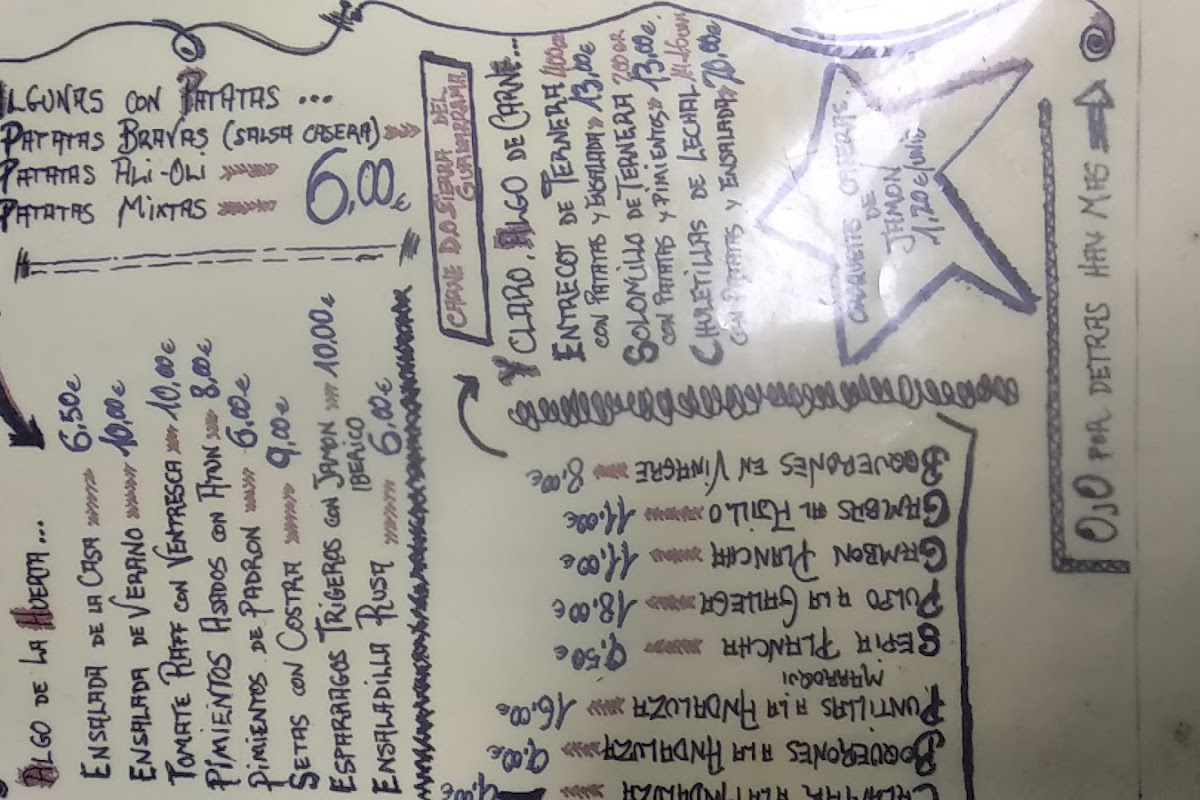 ALGUNAS CON PATATAS ...
PATATAS BRAVAS (SALSA CASERA) »»
PATATAS ALI-OLI »»»»
PATATAS MIXTAS »»»»
6,00€
ALGO DE LA HUERTA...
ENSALADA DE LA CASA »»»» 6.50€
ENSALADA DE VERANO »»»» 10,00€
TOMATE RAFF CON VENTRESCA »»» 10,00€
PIMIENTOS ASADOS CON ATUN »» 8,00€
PIMIENTOS DE PADRON »»»» 6.00€
SETAS CON COSTRA »»»» 9,00€
ESPARRAGOS TRIGEROS CON JAMON »» 10.00€
IBERICO
ENSALADILLA RUSA »»»» 6.00€
CARNE D.O SIERRA DEL
GUADARRAMA
Y CLARO, ALGO DE CARNE...
ENTRECOT DE TERNERA 400GR
CON PATATAS Y ENSALADA» 13,00€
SOLOMILLO DE TERNERA 200GR
CON PATATAS Y PIMIENTOS» 13,00€
CHULETILLAS DE LECHAL
CON PATATAS Y ENSALADA» 20,00€
CROQUETAS CASERAS
DE
JAMON
1,20€/UNID
BOQUERONES EN VINAGRE »»» 8,00€
GAMBAS AL AJILLO »»»» 11,00€
GAMBON PLANCHA »»»» 11,00€
PULPO A LA GALLEGA »»»» 18,00€
SEPIA PLANCHA »»»» 9,50€
MARROQUI
PUNTILLAS A LA ANDALUZA »»» 16,00€
BOQUERONES A LA ANDALUZA »»» 9,00€
CALAMAR A LA ANDALUZA »»» 9,00€
OJO POR DETRAS HAY MAS